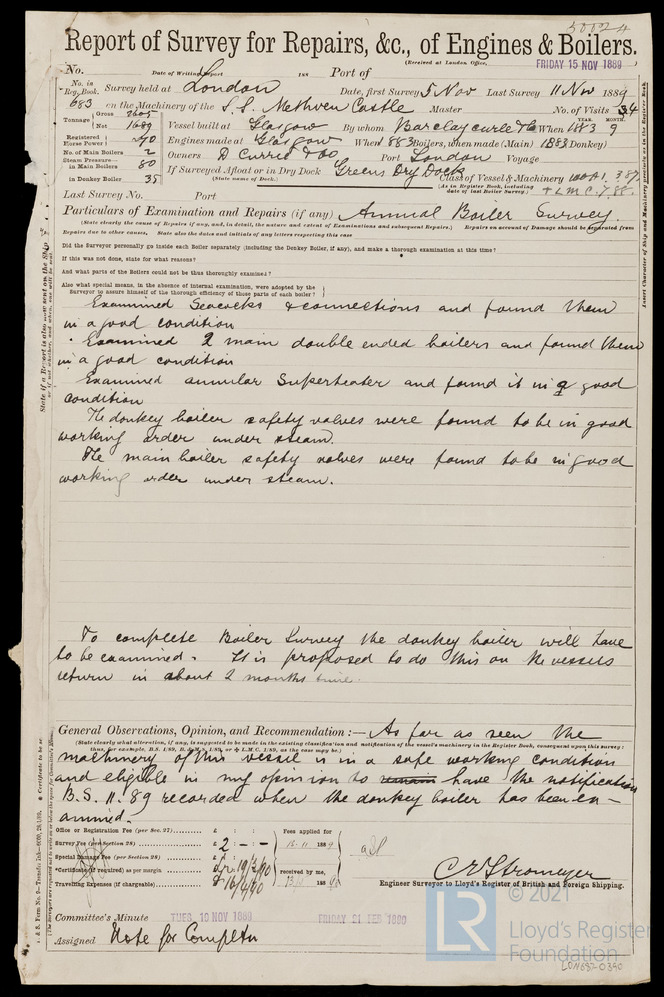 Report of Survey for Repairs, &c., of Engines & Boilers.
(Received at London Office, FRIDAY 15 NOV 1889
No. Date of Writing Report 188 Port of
No. in Reg. Book. Survey held at London Date, first Survey 5 Nov Last Survey 11 Nov 1889
683 on the Machinery of the S.S. Methven Castle Master No. of Visits 34
Tonnage Gross 2605
Net 1689
Vessel built at Glasgow By whom Barclay Curle & Co When 1883 9
YEAR. MONTH.
Registered Horse Power
Engines made at Glasgow When 1883 Boilers, when made (Main) 1883 (Donkey)
No. of Main Boilers 2
Owners D Currie & Co Port London Voyage
Steam Pressure in Main Boilers 80
in Donkey Boiler 35
If Surveyed Afloat or in Dry Dock Greens Dry Dock
(State name of Dock.)
Class of Vessel & Machinery 100A1. 3.87.
(As in Register Book, including date of last Boiler Survey.) + LMC. 7.88.
Last Survey No. Port
Particulars of Examination and Repairs (if any) Annual Boiler Survey.
(State clearly the cause of Repairs if any, and, in detail, the nature and extent of Examinations and subsequent Repairs.) Repairs on account of Damage should be separated from
Repairs due to other causes, State also the dates and initials of any letters respecting this case
Did the Surveyor personally go inside each Boiler separately (including the Donkey Boiler, if any), and make a thorough examination at this time?
If this was not done, state for what reasons?
And what parts of the Boilers could not be thus thoroughly examined?
Also what special means, in the absence of internal examination, were adopted by the
Surveyor to assure himself of the thorough efficiency of those parts of each boiler?
Examined Seacocks & connections and found them
in a good condition
Examined 2 main double ended boilers and found them
in a good condition
Examined annular Superheater and found it in a good
condition
The donkey boiler safety valves were found to be in good
working order under steam.
The main boiler safety valves were found to be in good
working order under steam.
To complete Boiler Survey the donkey boiler will have
to be examined. It is proposed to do this on the vessels
return in about 2 months time.
General Observations, Opinion, and Recommendation:— As far as seen the
(State clearly what alteration, if any, is suggested to be made in the existing classification and notification of the vessel's machinery in the Register Book, consequent upon this survey:
thus, for example, B.S. 1/89, B. & M.S. 1/89, or + L.M.C. 1/89, as the case may be.)
machinery of this vessel is in a safe working condition
and eligible in my opinion to remain have the notification
B.S. 11.89 recorded when the donkey boiler has been ex-
amined.
Office or Registration Fee (per Sec. 27) £ : :
Survey Fee (per Section 28) £ 2 - : -
Special Damage Fee (per Section 28) £
*Certificate (if required) as per margin
Travelling Expenses (if chargeable) £
Fees applied for
16.11 1889
received by me,
C E Stromeyer
Engineer Surveyor to Lloyd's Register of British and Foreign Shipping.
Committee's Minute TUES. 19 NOV 1889 FRIDAY 21 FEB 1890
Assigned Note for Completn
© 2021
LR
Lloyd's Register
Foundation
LON687-0390